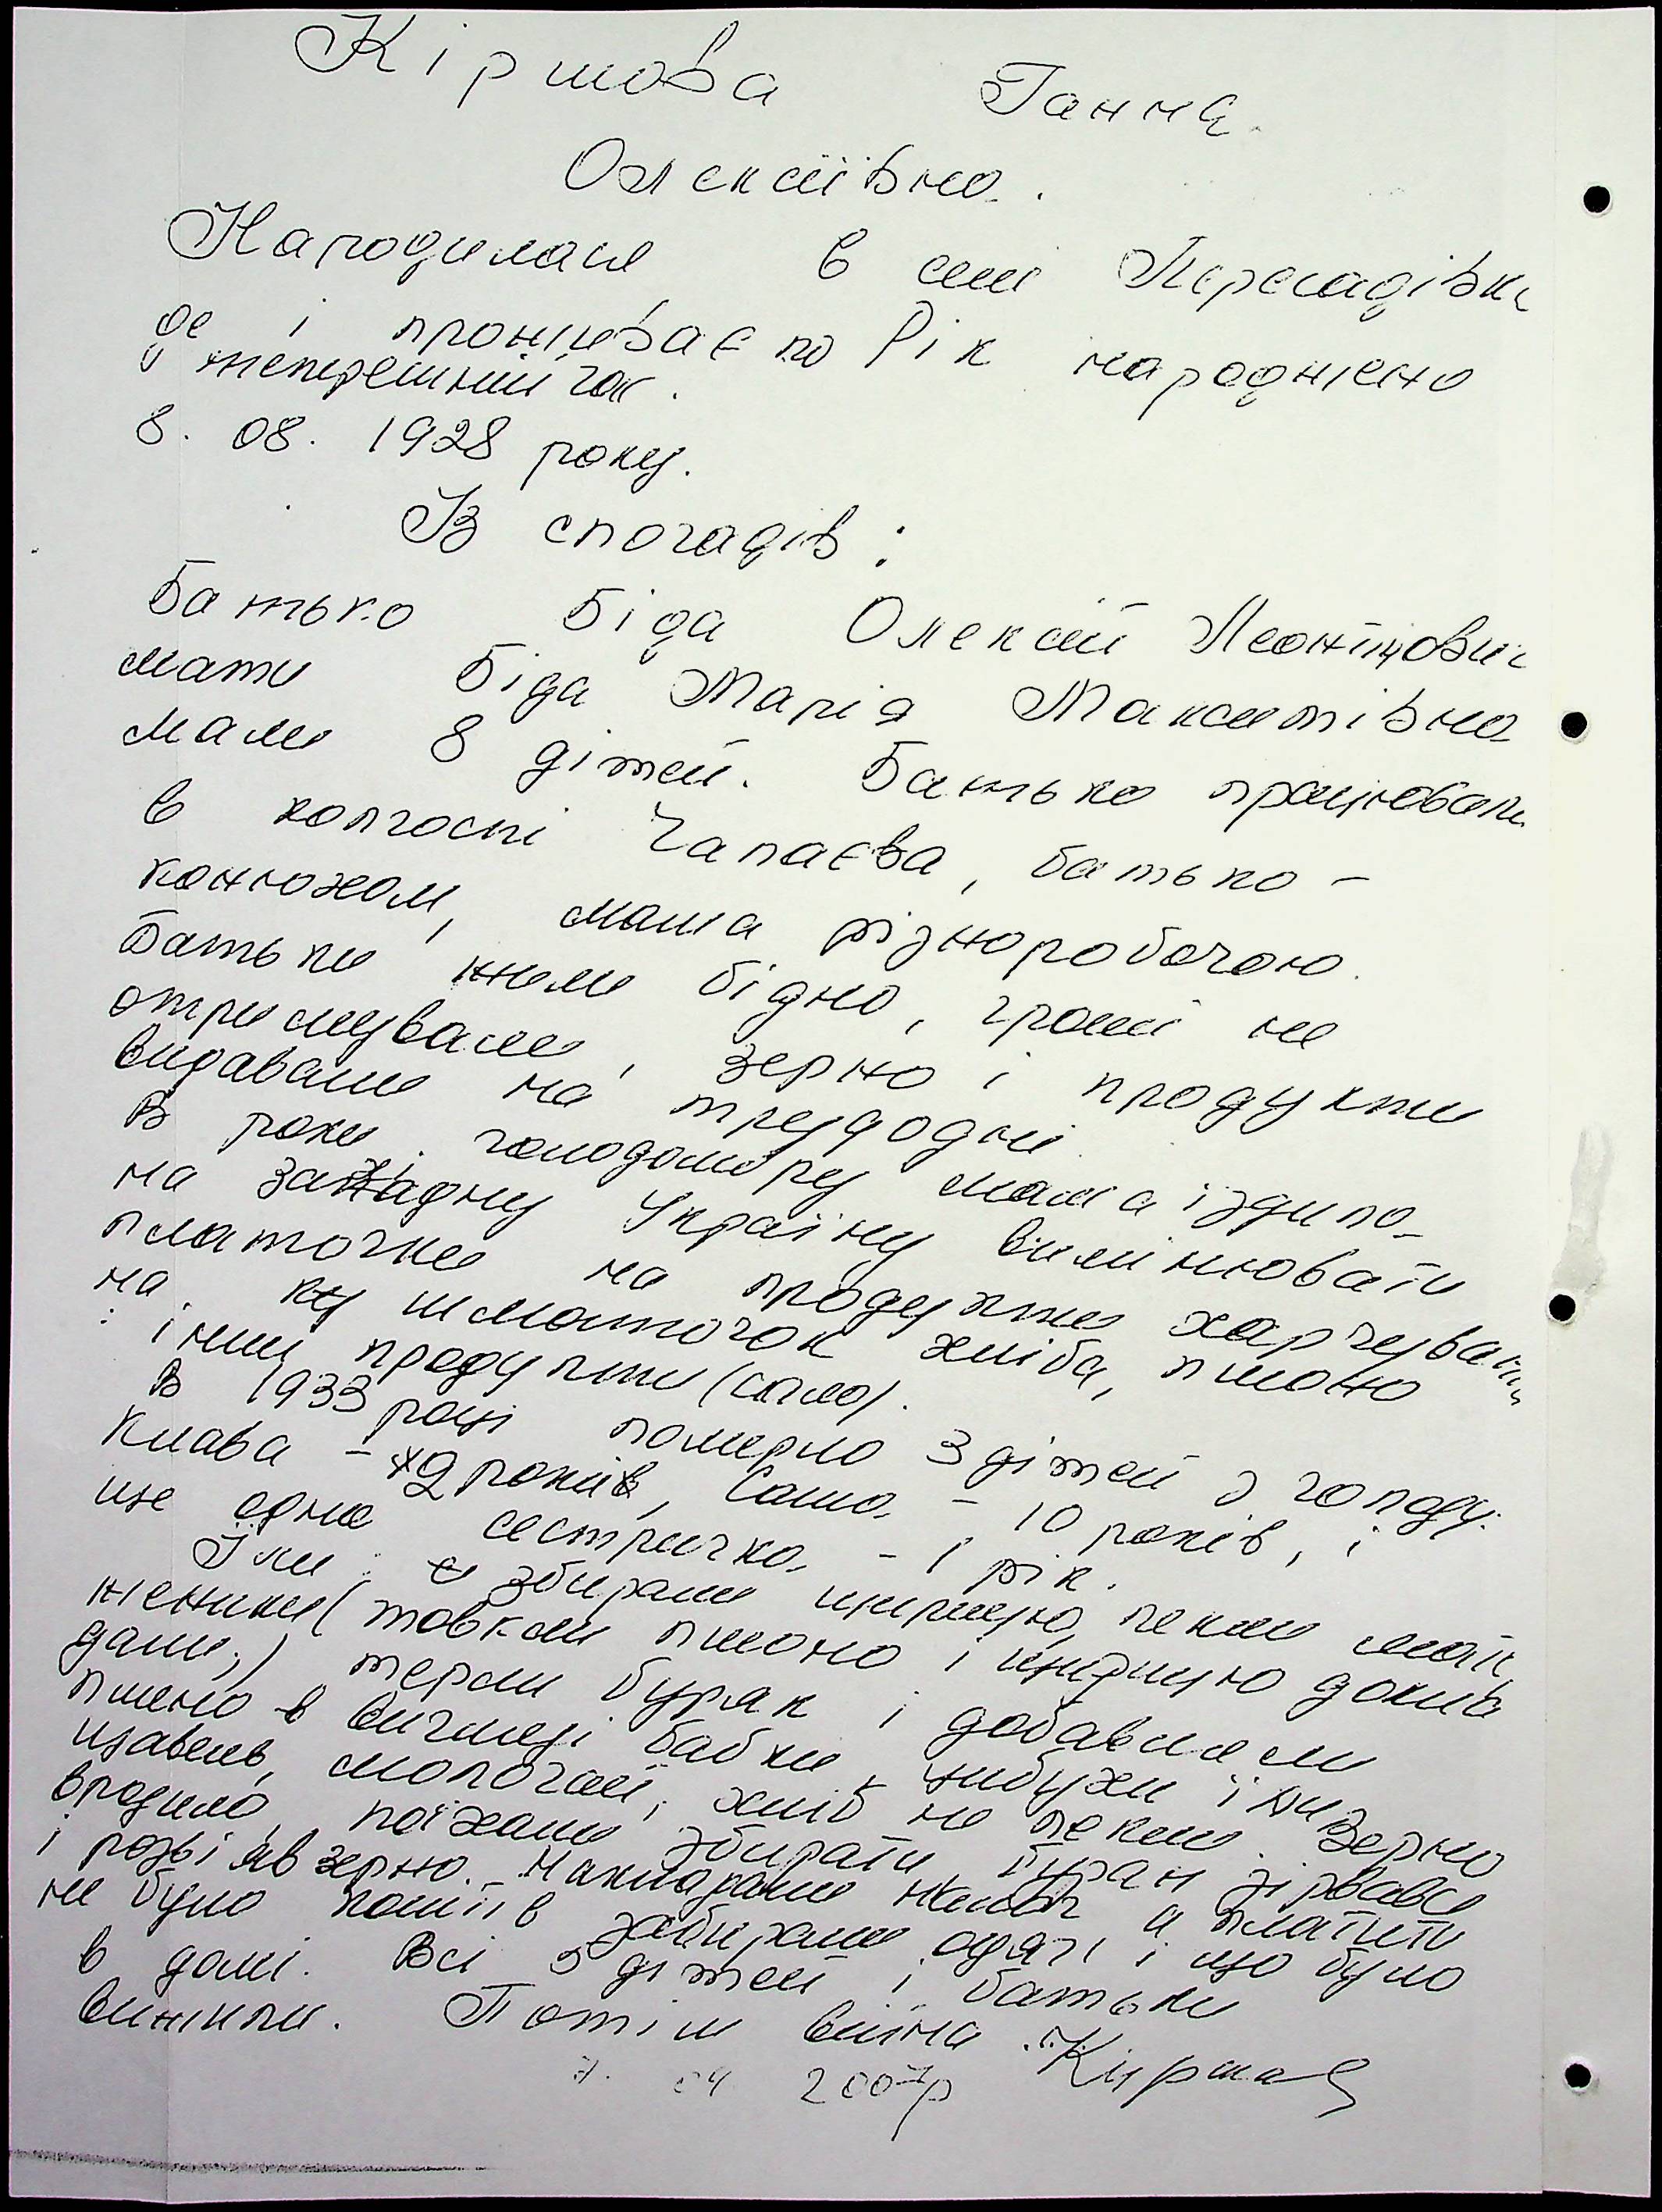 Кіршова Ганна
Олексіївна.
Народилася в селі Пересадівка
де і проживає по Рік народження
у теперішній час.
8. 08. 1928 року.
Із спогадів:
Батько Біда Олексій Леонтійович
мати Біда Марія Максимівна
мали 8 дітей. Батько працювали
в колгоспі Чапаєва, батько -
конюхом, мама різноробочою.
Батьки жили бідно, гроші не
отримували, зерно і продукти
видавали на трудодні.
В роки голодомору мама їздила
на західну Україну вимінювати
платочки на продукти харчування
на шматочок хліба, пшоно
і інші продукти (сало).
В 1933 році померло 3 дітей з голоду:
Клава - 2 роки, Саша - 10 років, і
ще одна сестричка - 1 рік.
Їли: збирали щирицю, пекли мали
женики (товкли пшоно і щирицю докидали,)
терли буряк і добавляли
пшоно в вигляді бабки, цибухи і
щавель, молочай, хліб не пекли. Зерно
вродило, поїхали збирати, буран зірвався
і розвіяв зерно. Накладали а платити
не було коштів забирали одяг і що було
в домі. Всі 5 дітей і батьки
вижили. Потім війна. Кіршова
7. 04 2007р